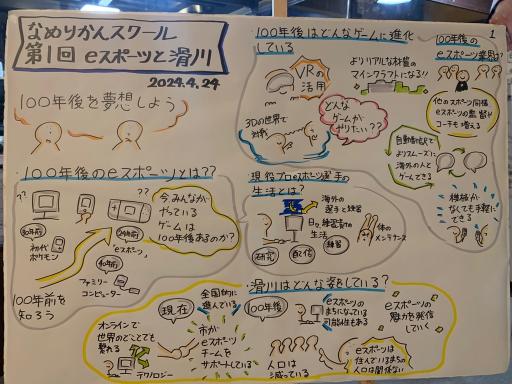 なめりかんスクール
第1回 eスポーツと滑川
2024.4.24
100年後を夢想しよう
・100年後のeスポーツとは??
??
??
30年前
初代
ポケモン
20年前
「eスポーツ」
40年前
ファミリー
コンピューター
100年前を
知ろう
今、みんなが
やっている
ゲームは
100年後あるのか?
1
100年後はどんなゲームに進化
している
VRの
活用
よりリアルな材質の
マインクラフトになる!!
3Dの世界で
対戦
どんな
ゲームが
やりたい??
100年後の
eスポーツ業界は?
他のスポーツ同様
eスポーツの監督や
コーチも増える
自動翻訳で
よりスムーズに
海外の人と
ゲームできる
機械が
なくても手軽に
できる
・現役プロeスポーツ選手の
生活とは?
海外の
選手と練習
日々練習者の
生活
体の
メンテナンス
研究
配信
練習
・滑川はどんな姿をしている?
現在
全国的に
進んでいる
オンラインで
世界のどことでも
繋れる
テクノロジー
市が
eスポーツ
チームを
サポートしている
100年後
eスポーツの
まちになっている
可能性もある
人口は
減っている
eスポーツの
魅力を発信
していく
eスポーツは
住んでいるまちの
人口は関係ない